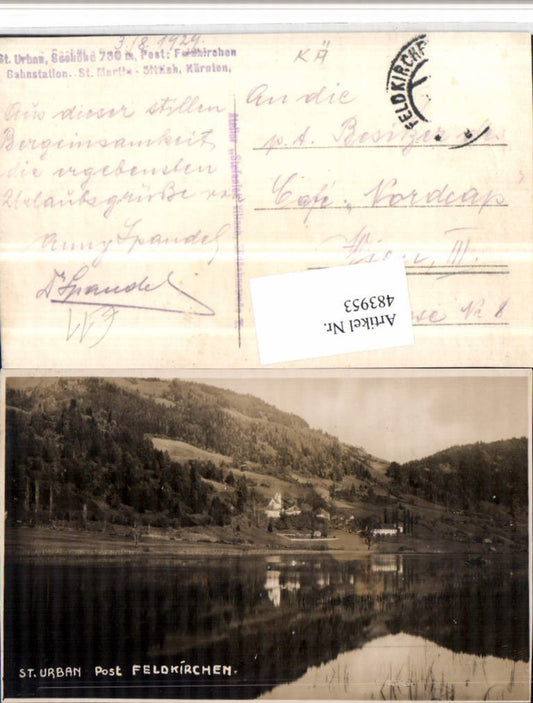 3./8. 1929.
St. Urban, Seehöhe 750 m, Post: Feldkirchen
Bahnstation. St. Martin - Sittich. Kärnten.
KÄ
FELDKIRCHEN
Aus dieser stillen
Bergeinsamkeit
die ergebensten
Urlaubsgrüße von
Anny Spandel
Dr Spandel
Atelier „Stefanie"
An die
p. t. Besitzer des
Café „Nordcap"
Wien, III.
Nr 8
Artikel Nr.
483953
ST. URBAN Post FELDKIRCHEN.